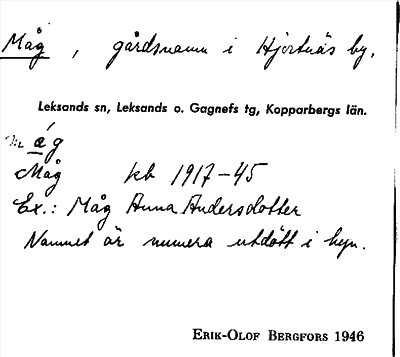 Måg, gårdsnamn i Hjortnäs by.
Leksands sn, Leksands o. Gagnefs tg, Kopparbergs län.
mǽg
Måg kb 1917-45
Ex.: Måg Anna Andersdotter
Namnet är numera utdött i byn.
ERIK-OLOF BERGFORS 1946